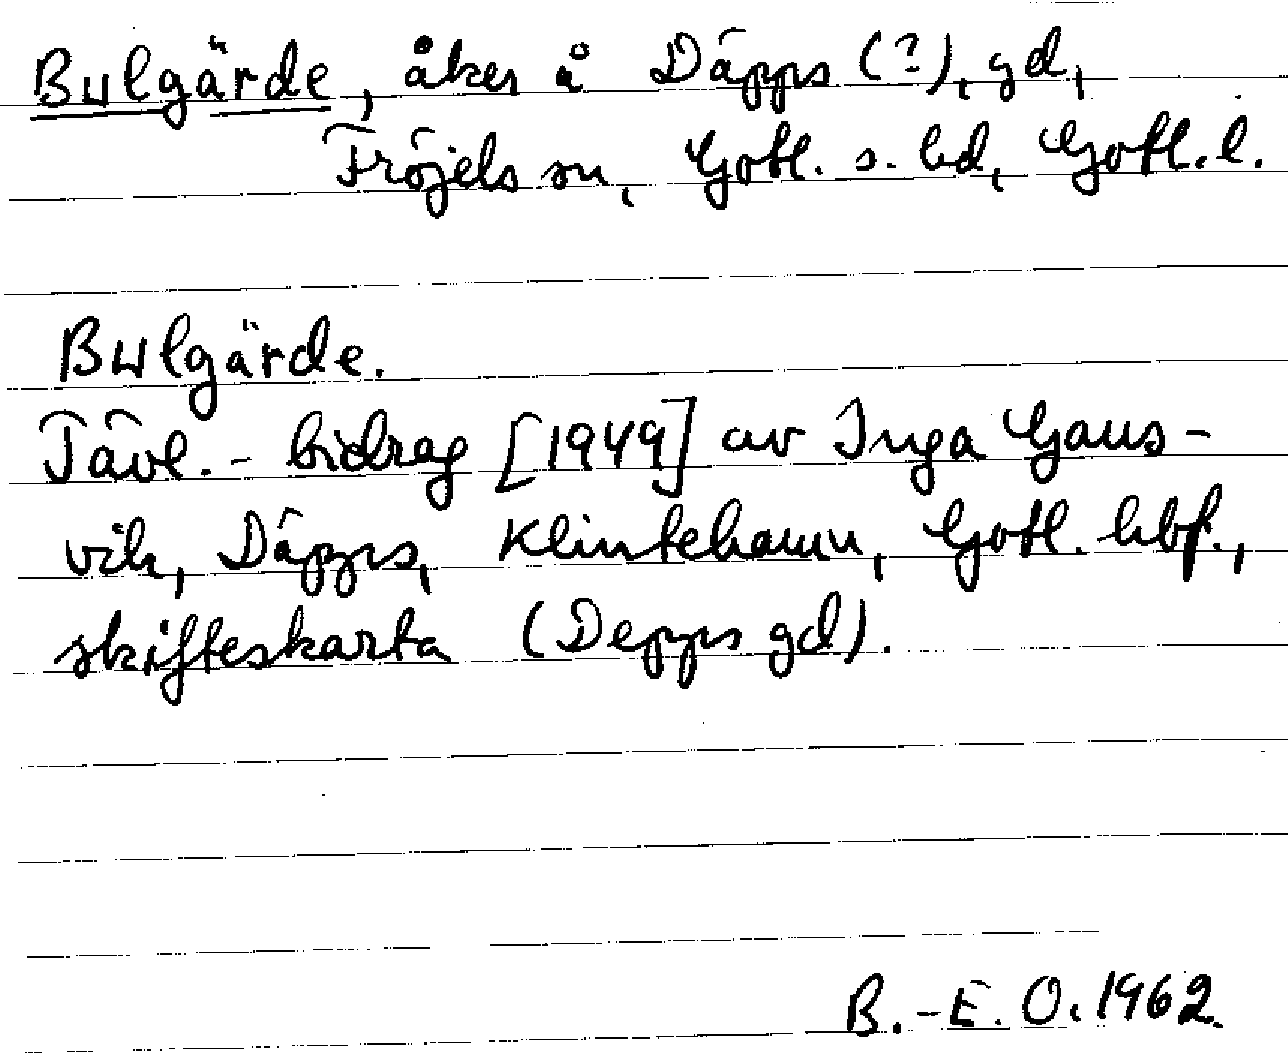 Bulgärde, åker å Däpps (?), gd,
Fröjels sn, Gotl. s. hd, Gotl. l.
Bulgärde.
Tävl.-bidrag [1949] av Inga Gans-
vik, Däpps, Klintehamn, Gotl. hbf.,
skifteskarta (Depps gd).
B.-E. O. 1962.